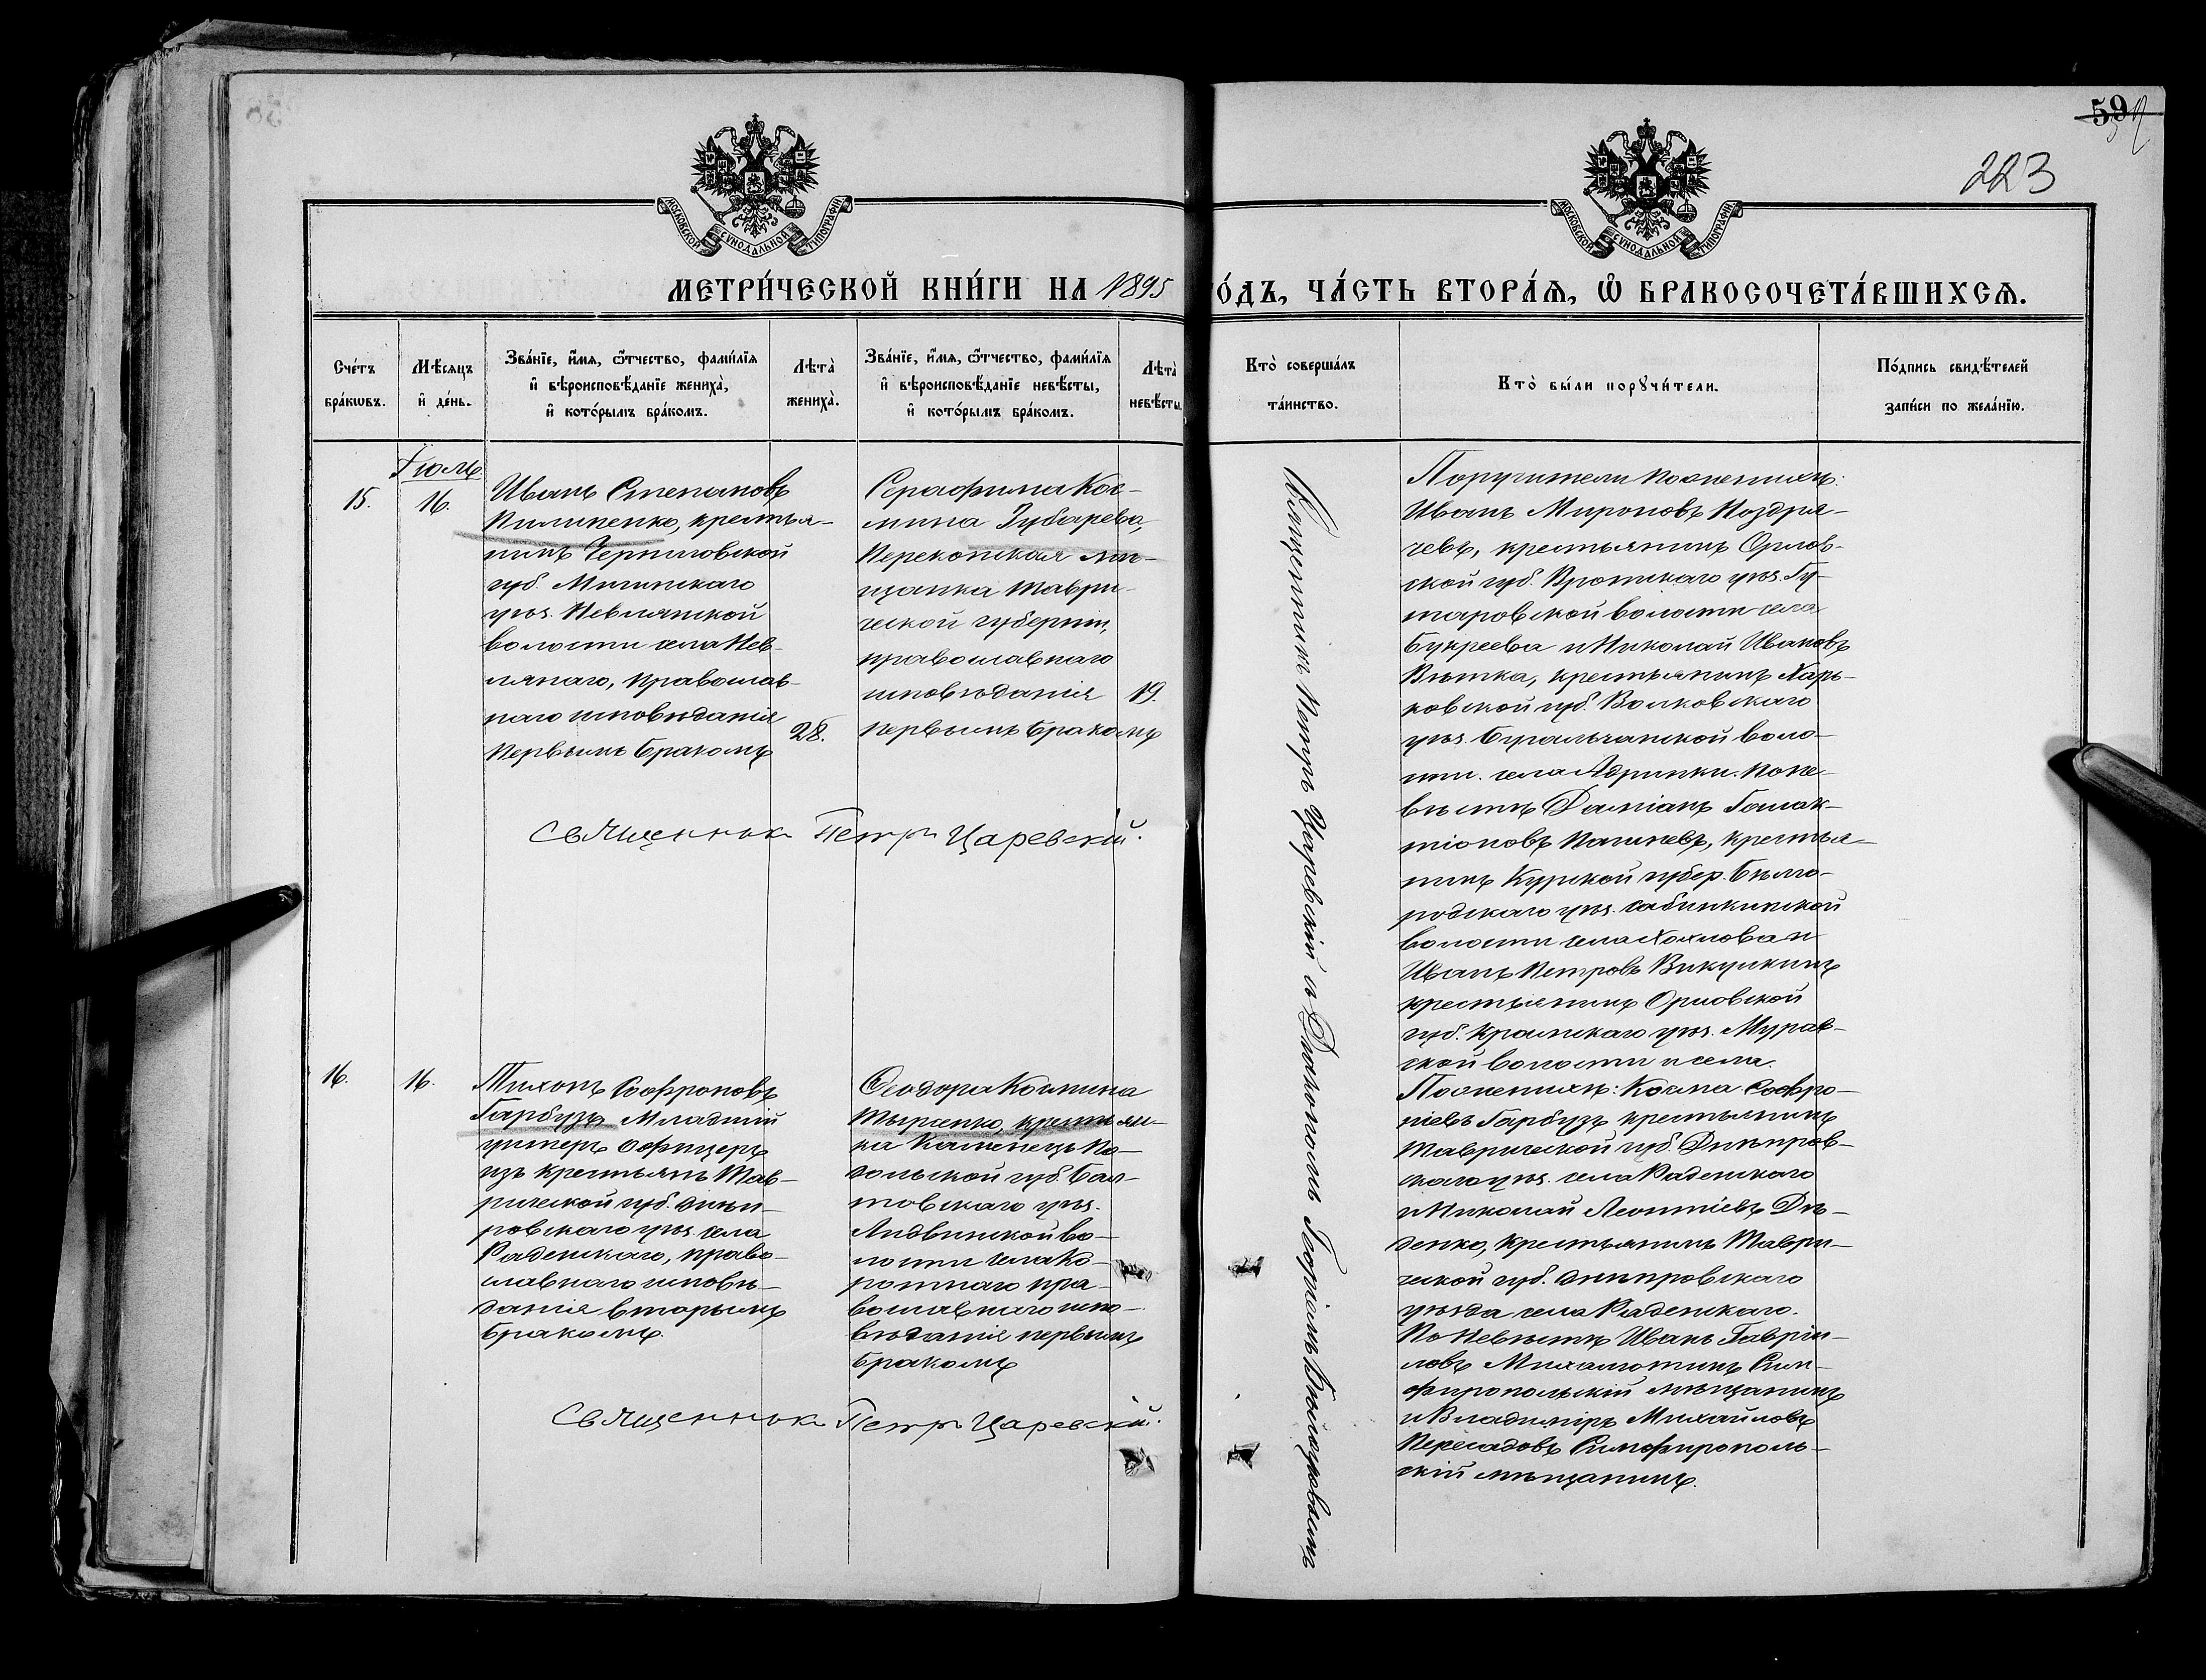 59
223
МОСКОВСКОЙ СѴНОДАЛЬНОЙ ТИПОГРАФІИ
МОСКОВСКОЙ СѴНОДАЛЬНОЙ ТИПОГРАФІИ
МЕТРИ́ЧЕСКОЙ КНИ́ГИ НА 1895
ГО́ДЪ, ЧА́СТЬ ВТОРА́Ѧ, Ѽ БРАКОСОЧЕТА́ВШИХСѦ.
Сче́тъ бра́кѡвъ.
Мѣ́сяцъ и҆ де́нь.
Зва́нїе, и҆́мя, ѻ҆́тчество, фами́лїя
и҆ вѣроисповѣ́данїе жениха̀,
и҆ кото́рымъ бра́комъ.
Лѣта̀ жениха̀.
Зва́нїе, и҆́мя, ѻ҆́тчество, фами́лїя
и҆ вѣроисповѣ́данїе невѣ́сты,
и҆ кото́рымъ бра́комъ.
Лѣта̀ невѣ́сты.
Кто̀ соверша́лъ та́инство.
Кто̀ бы́ли порꙋчи́тели.
По́дпись свидѣ́телей
запи́си по жела́нїю.
Іюль
15.
16.
Иванъ Степановъ
Пилипенко, крестья-
нинъ Черниговской
губ. Мглинскаго
уѣз. Нивлянской
волости села Нив-
лянаго, православ-
наго исповѣданія
первымъ бракомъ
28.
Серафима Кос-
мина Зубарева,
Перекопская мѣ-
щанка Таври-
ческой губерніи,
православнаго
исповѣданія
первымъ бракомъ
19.
Священникъ Петръ Царевскій.
Священникъ Петръ Царевскій съ Діакономъ Георгіемъ
Поручители по женихѣ:
Иванъ Мироновъ Ноздра-
чевъ, крестьянинъ Орлов-
ской губ. Кромскаго уѣз. Гу-
таровской волости села
Букреева и Николай Ивановъ
Вѣтка, крестьянинъ Харь-
ковской губ. Волковскаго
уѣз. воло-
сти. села по не-
вѣстѣ Даміанъ Галак-
тіоновъ крестья-
нинъ Курской губер. Бѣлго-
родскаго уѣз. Сабынинской
волости села Хохлова и
Иванъ Петровъ Викулкинъ
крестьянинъ Орловской
губ. уѣз. Мурав-
ской волости и села.
16.
16.
Тихонъ Софроновъ
Гарбузъ Младшій
унтеръ офицеръ
изъ крестьянъ Тав-
рической губ. Днѣп-
ровскаго уѣз. села
Раденскаго, право-
славнаго исповѣ-
данія вторымъ
бракомъ.
Ѳеодора Космина
крестьян-
ка Каменецъ По-
дольской губ. Бал-
товскаго уѣз.
во-
лости села Ко-
ротнаго пра-
вославнаго испо-
вѣданія первымъ
бракомъ
Священникъ Петръ Царевскій.
По женихѣ: Косма Софро-
ніевъ Гарбузъ крестьянинъ
Таврической губ. Днѣпров-
скаго уѣз. села Раденскаго
и Николай Леонтіевъ Дѣ-
денко, крестьянинъ Таври-
ческой губ. Днѣпровскаго
уѣзда села Раденскаго.
По Невѣстѣ Иванъ Гаврі-
ловъ Сим-
феропольскій мѣщанинъ
и Владиміръ Михайловъ
Пересадовъ Симферополь-
скій мѣщанинъ.